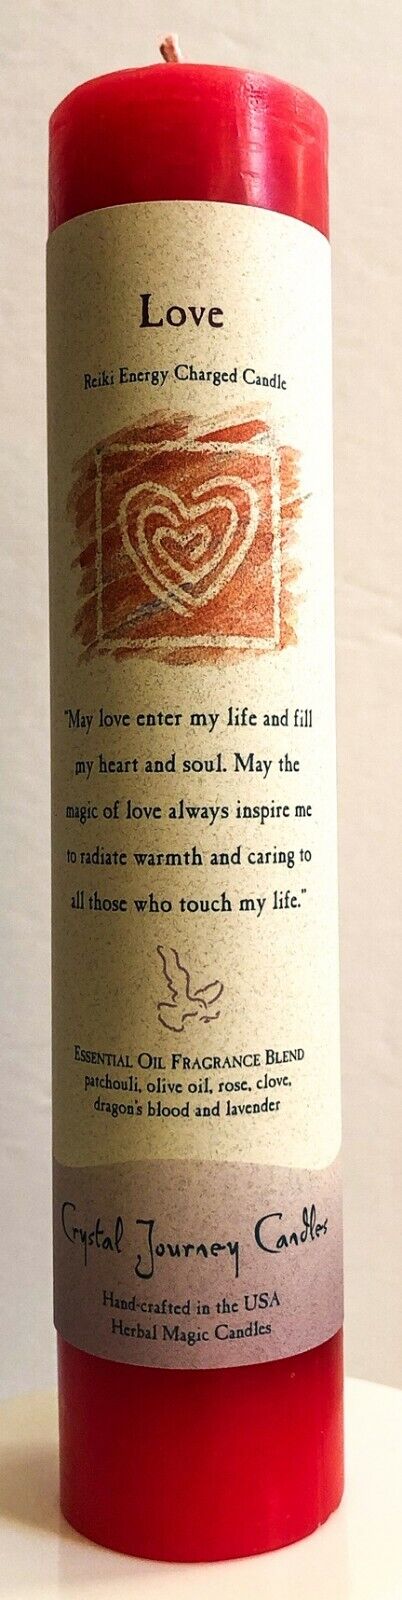 Love
Reiki Energy Charged Candle
"May love enter my life and fill
my heart and soul. May the
magic of love always inspire me
to radiate warmth and caring to
all those who touch my life."
ESSENTIAL OIL FRAGRANCE BLEND
patchouli, olive oil, rose, clove,
dragon's blood and lavender
Crystal Journey Candles
Hand-crafted in the USA
Herbal Magic Candles